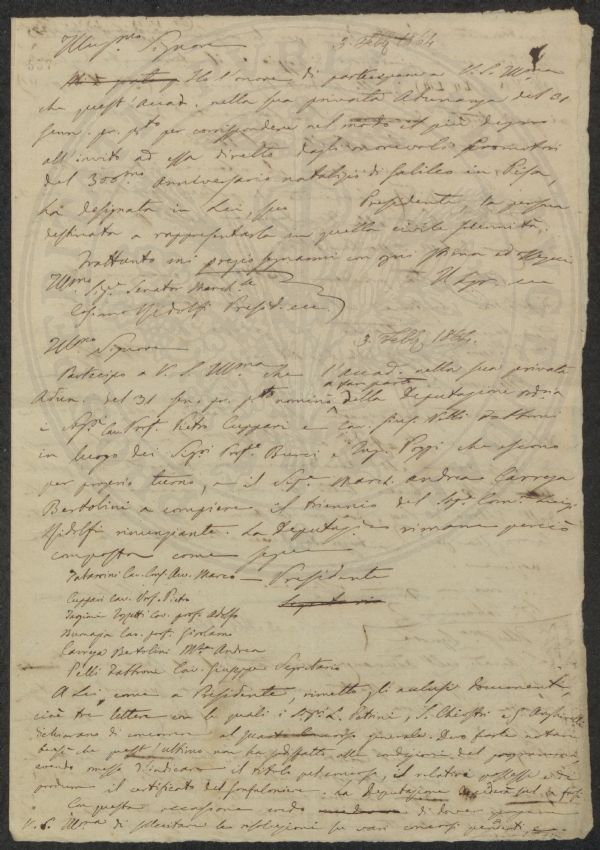 Illus^mo Signore 3. Febb. 1864
Ho l'onore di partecipare a V. S. Ill^ma
che quest'Accad. nella sua privata Adunanza del 31
Genn. po. p^to per corrispondere nel modo il più degno
all'invito ad essa diretto dagli onorevoli Promotori
del 300^mo Anniversario natalizio di Galileo in Pisa,
ha designata in Lei, suo Presidente, la persona
destinata a rappresentarla in quella civile solennità.
Frattanto mi pregio segnarmi con ogni
Ill^mo Sig^r Senator March^se
Cosimo Ridolfi Presid.
Ill^mo Signore 3. Febb. 1864.
Partecipo a V. S. Ill^ma che l'Accad. nella sua privata
a far parte
Adun. del 31 Gen. po. p^to nominò della Deputazione
i Sig^ri Cav. Prof. Pietro Cuppari e Cav. Giusp. Pelli Fabbroni
in luogo dei Sig^ri Prof. Burci e Ing. Poggi che escono
per proprio turno, e il Sig^r March. Andrea Carrega
Bertolini a compiere il triennio del Sig^r Com^re Luigi
Ridolfi rinunziante. La Deputaz^e rimane perciò
composta come segue
Tabarrini Cav. Conf. Avv. Marco — Presidente
Cuppari Cav. Prof. Pietro
Targioni Tozzetti Cav. prof. Adolfo
Buonazia Cav. prof. Girolamo
Carrega Bertolini M^se Andrea
Pelli Fabbrone Cav. Giuseppe Segretario
A Lei, come a Presidente, rimetto gli acclusi documenti,
cioè tre lettere con le quali i Sig^ri L. S. Chiostri e G.
dichiarano di concorrere al concorso generale. Devo farle notare
che quest'ultimo non ha soddisfatto alle condizioni del programma,
avendo omesso d'indicare il titolo pel concorso, il relativo possesso e di
produrre il certificato del Gonfaloniere. La Deputazione deciderà sul da farsi.
In questa occasione credo di dover
V. S. Ill^ma di sollecitare le risoluzioni su vari concorsi pendenti,